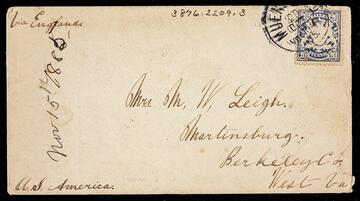 Via England.
3876.2209.3
Nov 15th 1885
Mrs M. W. Leigh.
Martinsburg.
Berkeley Co.
West Va
U.S. America.